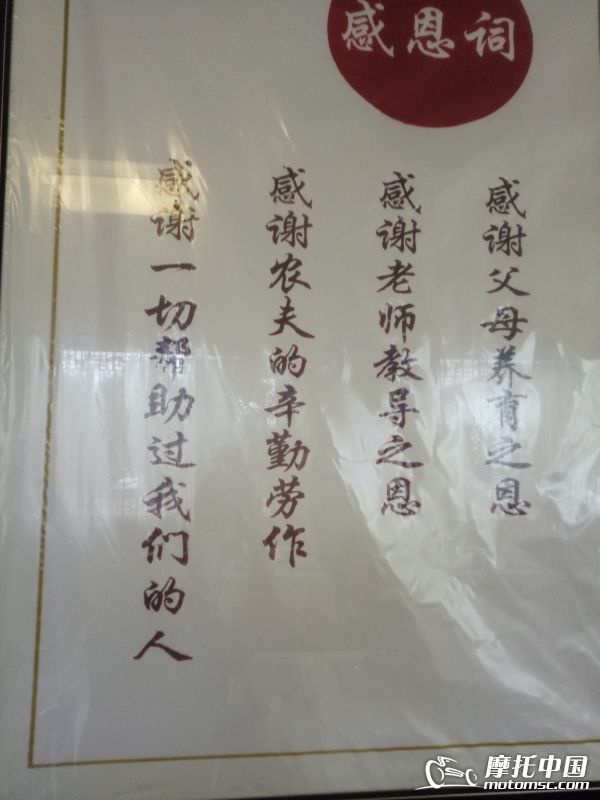 感恩词
感谢父母养育之恩
感谢老师教导之恩
感谢农夫的辛勤劳作
感谢一切帮助过我们的人
摩托中国
motomsc.com